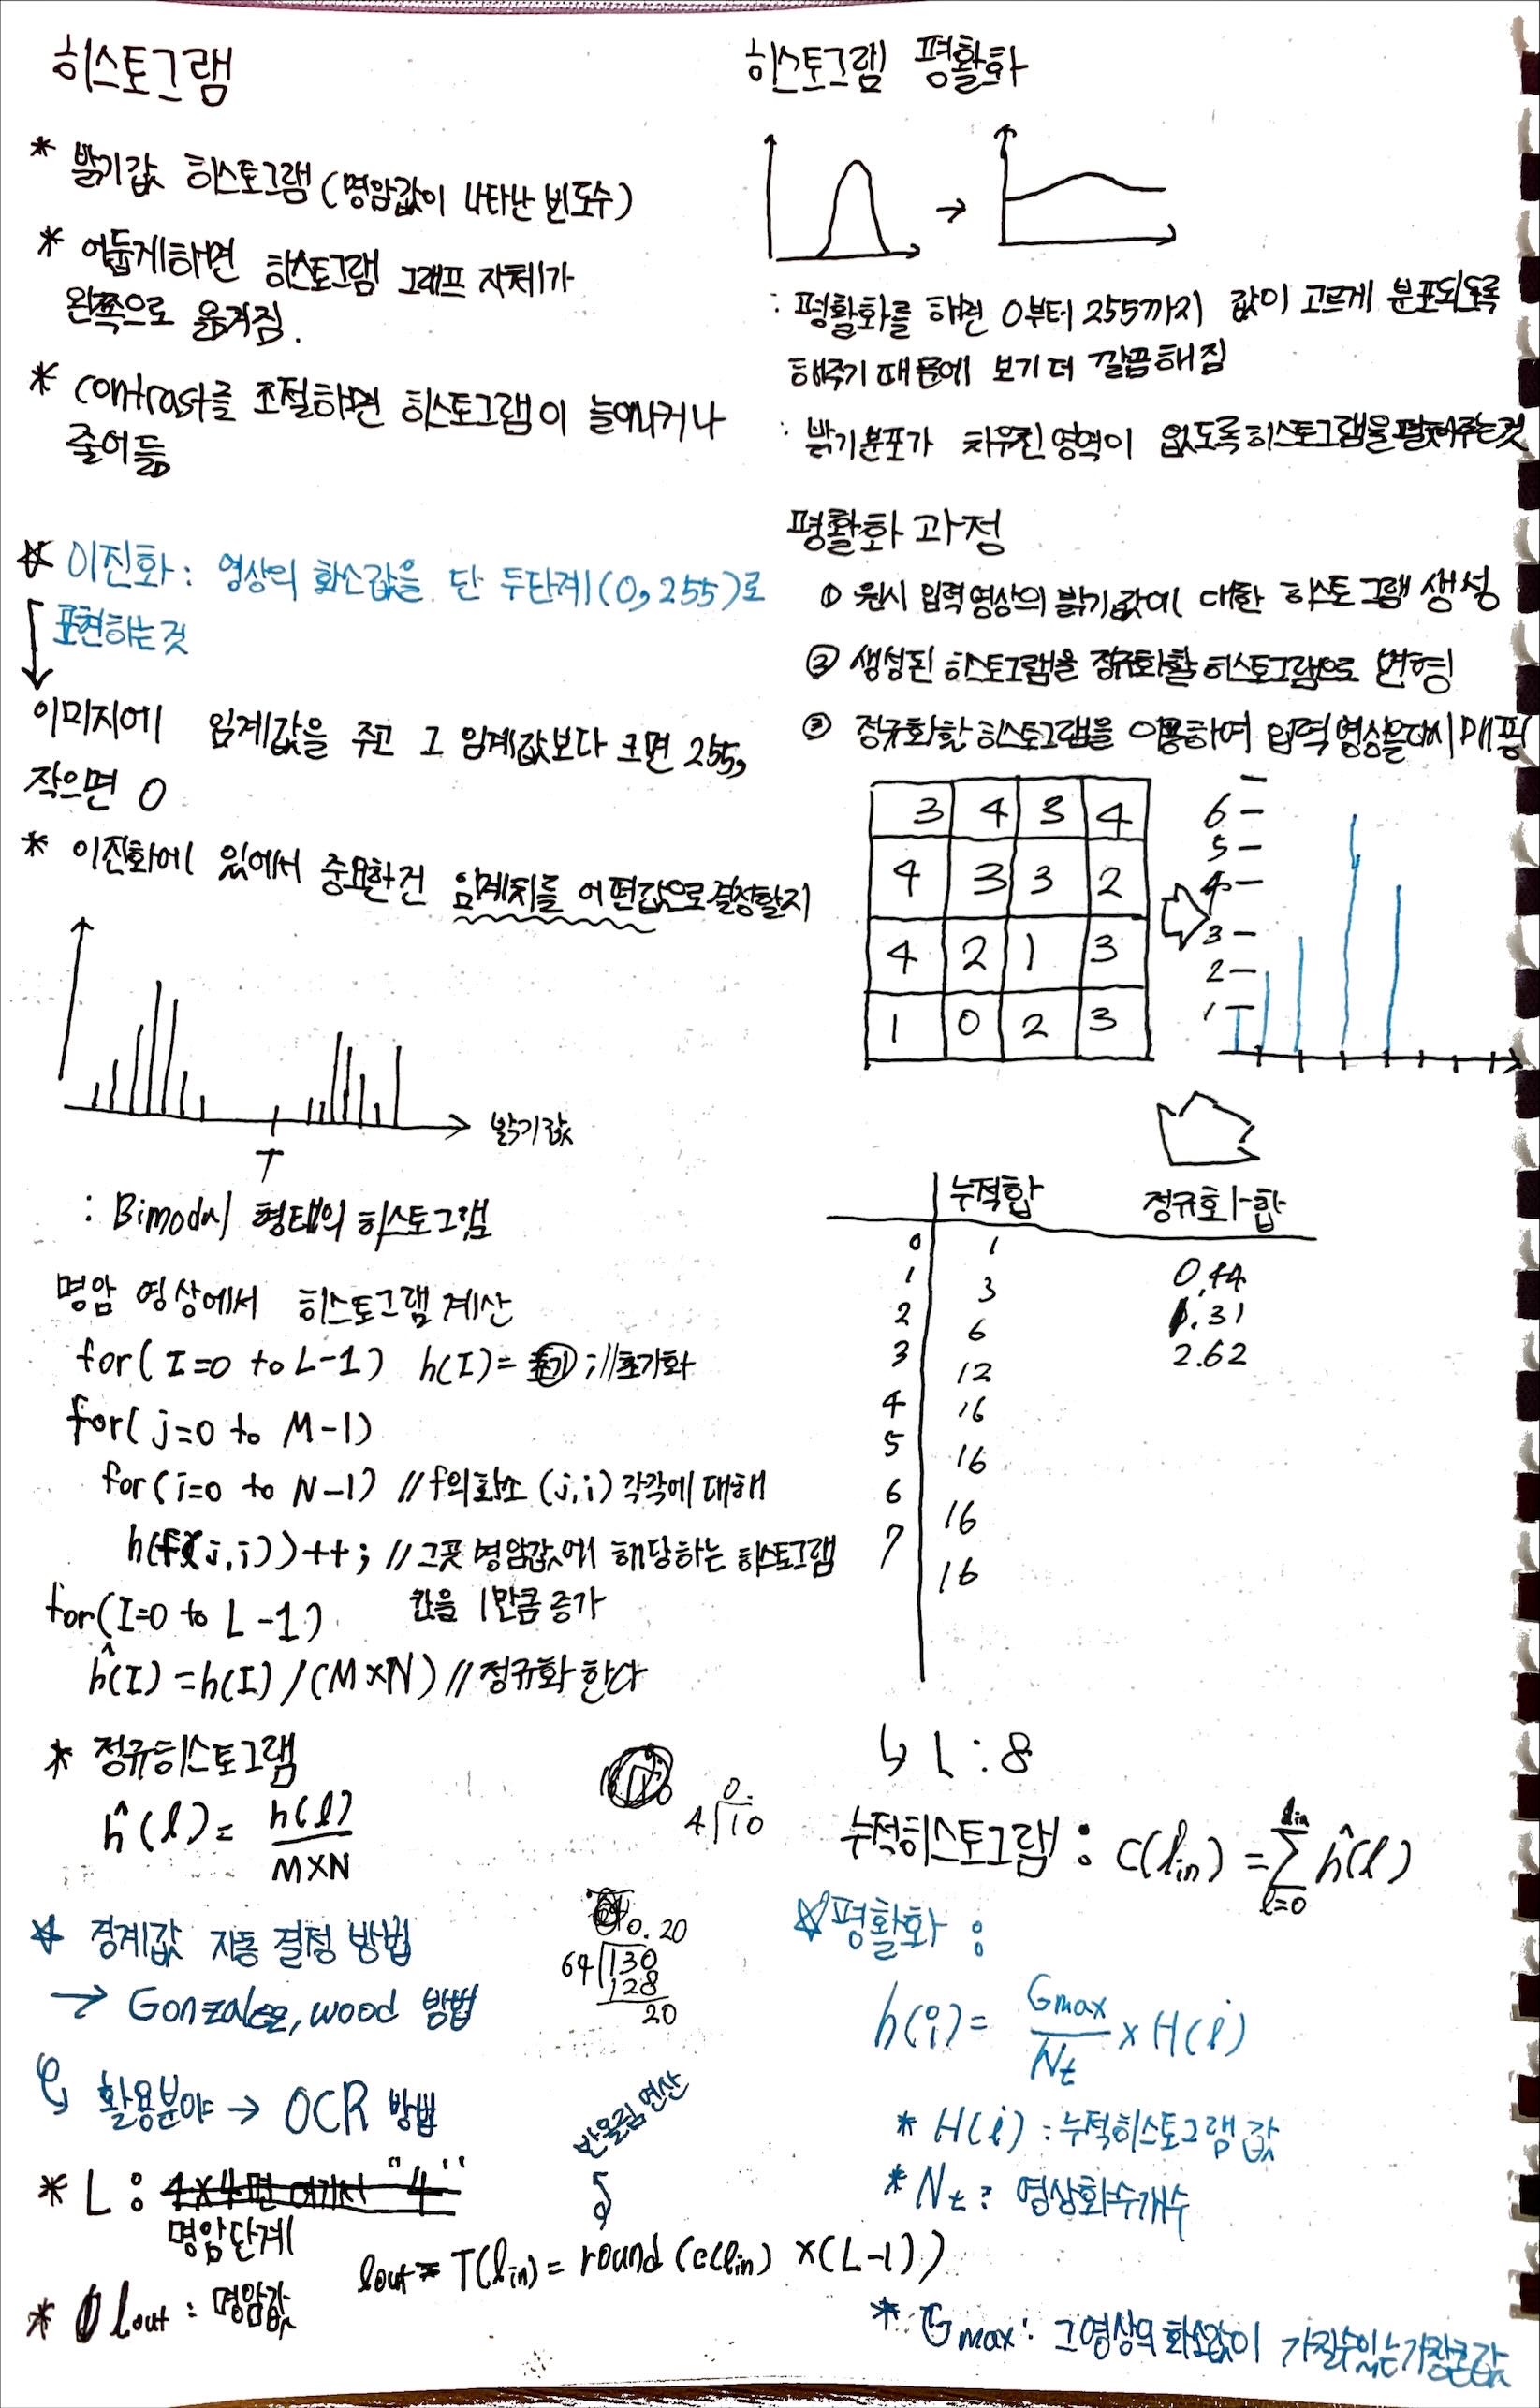 히스토그램
* 밝기값 히스토그램 (명암값이 나타난 빈도수)
* 어둡게하면 히스토그램 그래프 자체가
왼쪽으로 옮겨짐.
* contrast를 조절하면 히스토그램이 늘어나거나
줄어듦
☆ 이진화 : 영상의 화소값을 단 두단계(0, 255)로
표현하는것
이미지에 임계값을 주고 그 임계값보다 크면 255,
작으면 0
* 이진화에 있어서 중요한건 임계치를 어떤값으로 결정할지
밝기값
T
: Bimodal 형태의 히스토그램
명암 영상에서 히스토그램 계산
for( I=0 to L-1) h(I)= ;//초기화
for( j=0 to M-1)
for(i=0 to N-1) //f의화소 (j,i) 각각에 대해
h(f(j,i))++; //그곳 명암값에 해당하는 히스토그램
칸을 1만큼 증가
for(I=0 to L-1)
ĥ(I) =h(I) /(M×N) //정규화 한다
* 정규히스토그램
ĥ(l) = h(l) / M×N
4 10 0.
☆ 경계값 자동 결정 방법
→ Gonzalez, wood 방법
0.20
64 130
128
20
활용분야 → OCR 방법
* L : 4×4면 여기서 "4"
명암단계
반올림 연산
lout = T(lin) = round (c(lin) ×(L-1))
* lout : 명암값
히스토그램 평활화
→
: 평활화를 하면 0부터 255까지 값이 고르게 분포되도록
해주기 때문에 보기 더 깔끔해짐
: 밝기분포가 치우친 영역이 없도록 히스토그램을 펼쳐주는것
평활화 과정
① 원시 입력영상의 밝기값에 대한 히스토그램 생성
② 생성된 히스토그램을 정규화할 히스토그램으로 변형
③ 정규화한 히스토그램을 이용하여 입력 영상을 다시 매핑
3 4 3 4
4 3 3 2
4 2 1 3
1 0 2 3
6
5
4
3
2
1
누적합 정규화합
0 1
1 3 0.44
2 6 1.31
3 12 2.62
4 16
5 16
6 16
7 16
↳ L : 8
누적히스토그램 : c(lin) = Σ ĥ(l)
lin
l=0
☆평활화 :
h(i) = Gmax / Nt × H(i)
* H(i) : 누적히스토그램 값
* Nt : 영상화수개수
* Gmax : 그영상의 화소값이 가질수있는 가장큰값